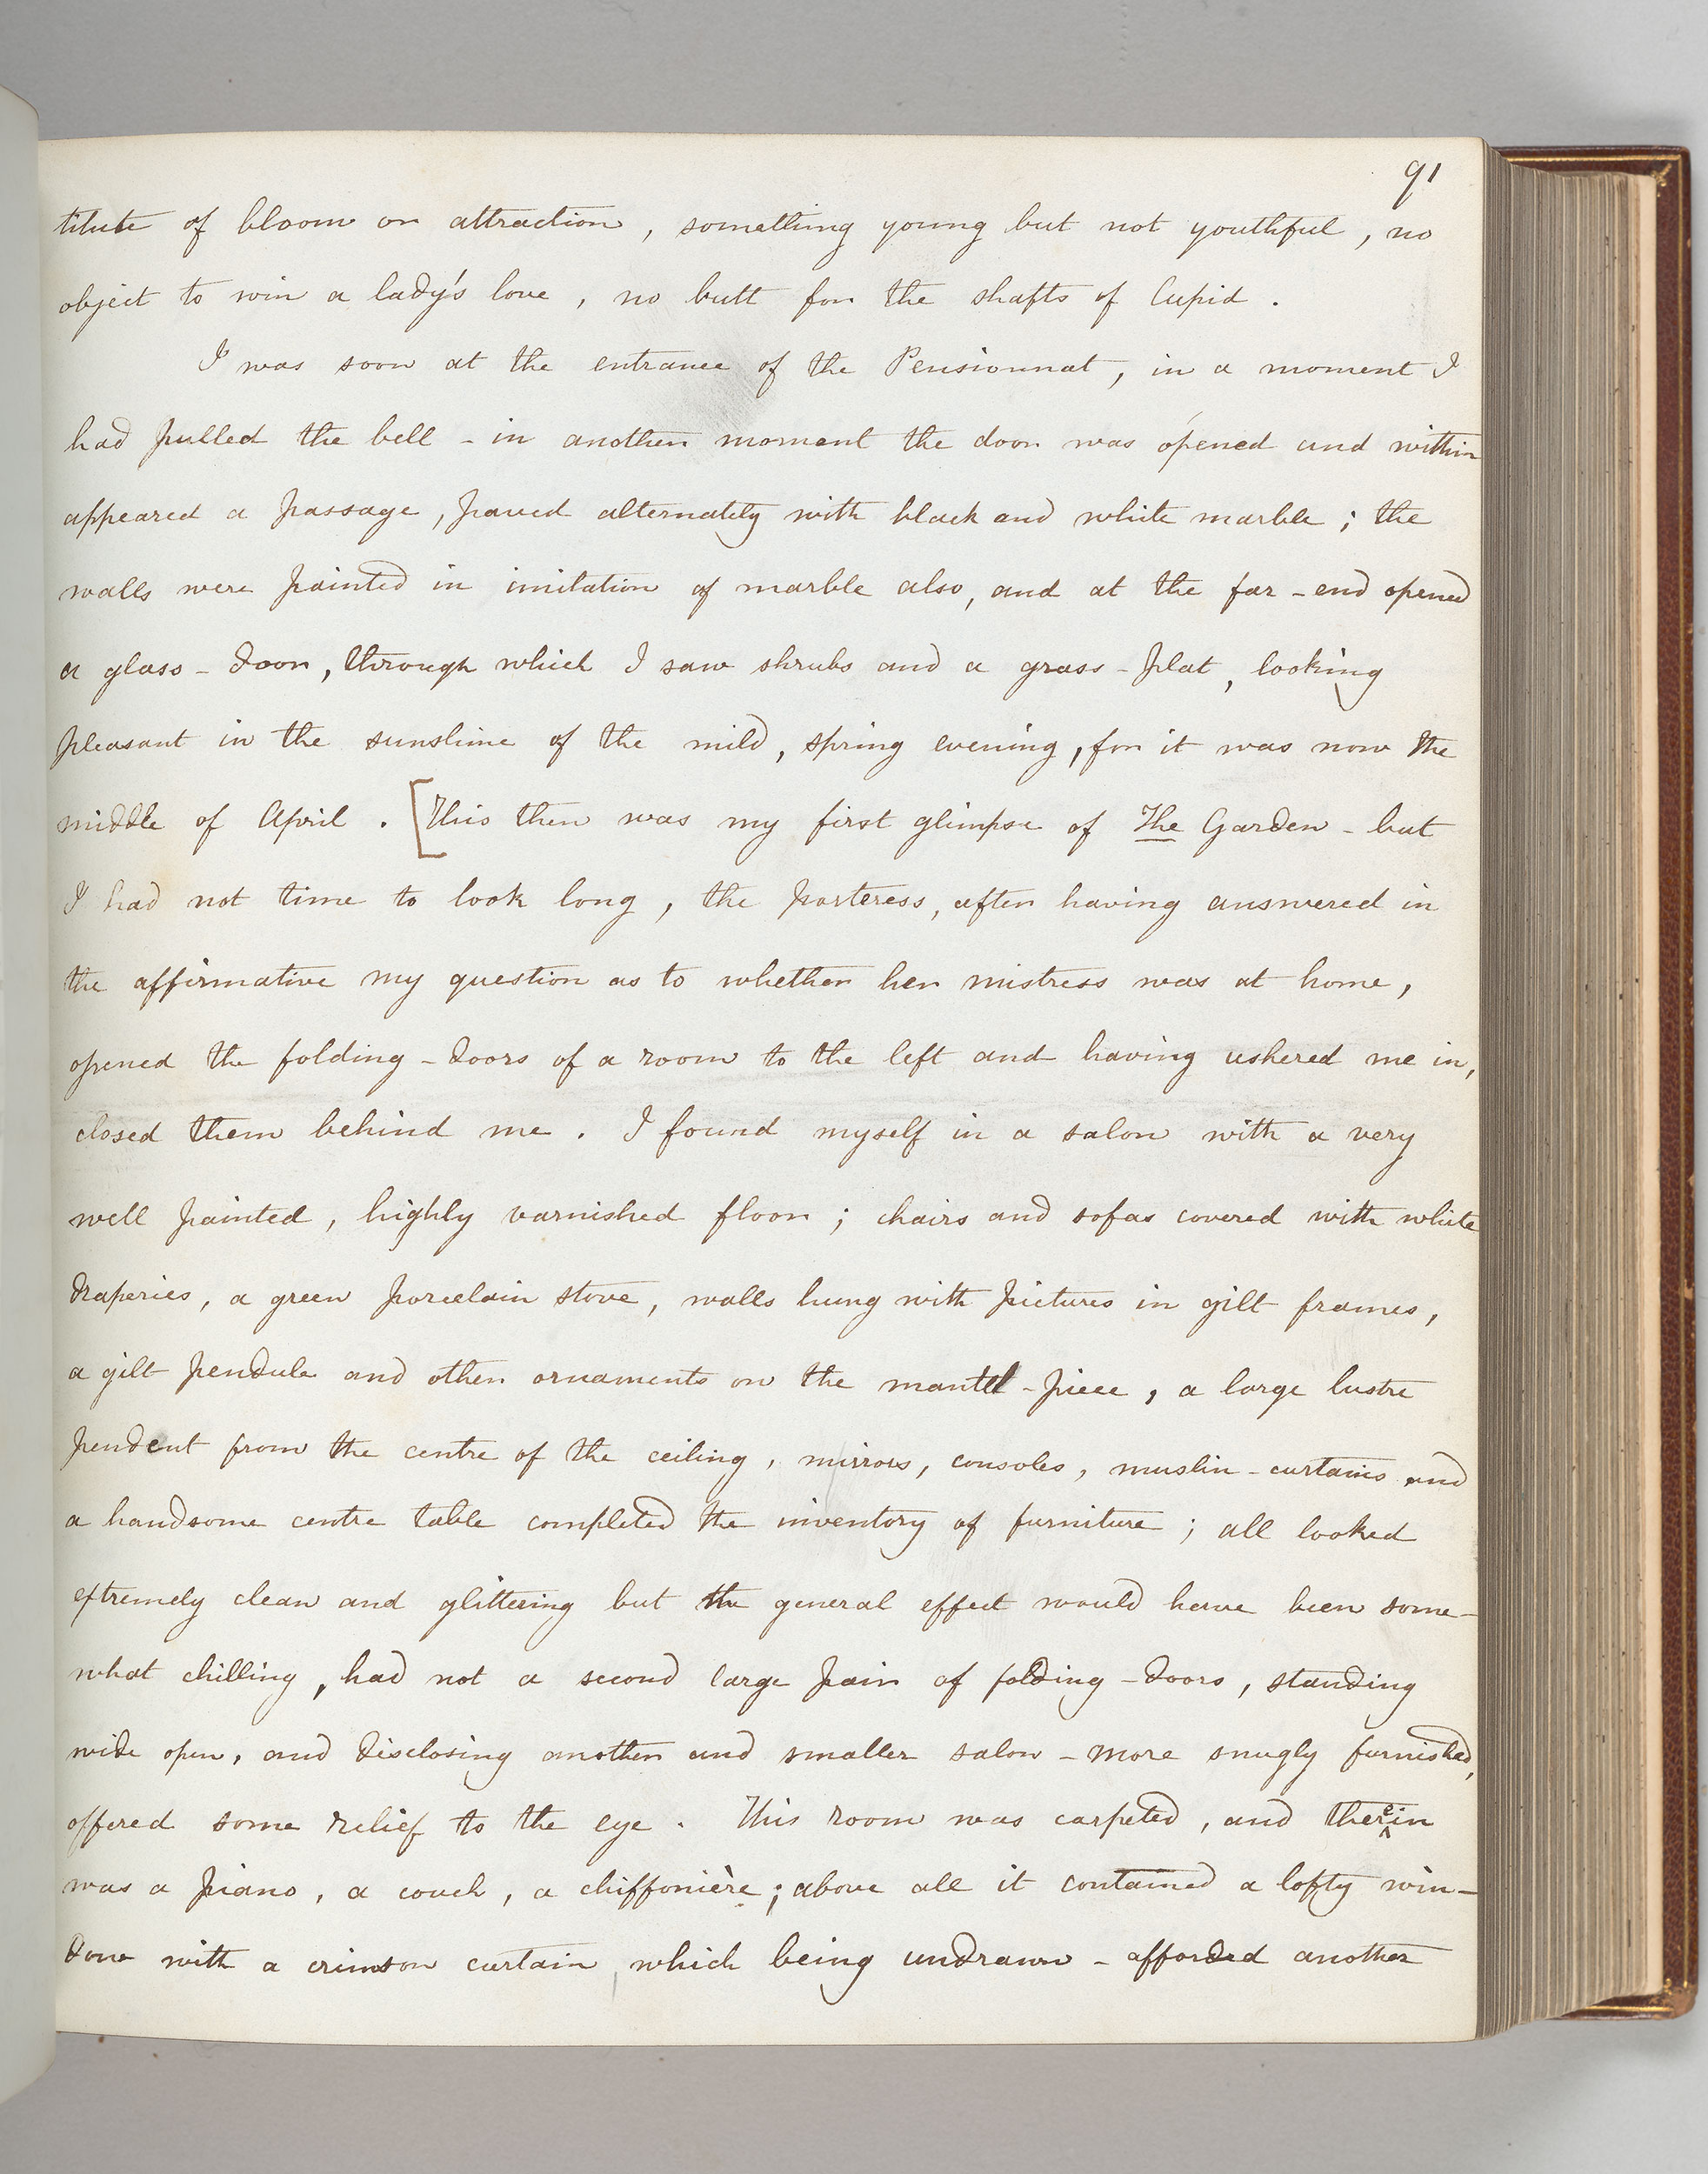 91
titute of bloom or attraction, something young but not youthful, no
object to win a lady's love, no butt for the shafts of Cupid.
I was soon at the entrance of the Pensionnat, in a moment I
had pulled the bell - in another moment the door was opened and within
appeared a passage, paved alternately with black and white marble; the
walls were painted in imitation of marble also, and at the far-end opened
a glass-door, through which I saw shrubs and a grass-plat, looking
pleasant in the sunshine of the mild, spring evening, for it was now the
middle of April. [This then was my first glimpse of The Garden - but
I had not time to look long, the porteress, after having answered in
the affirmative my question as to whether her mistress was at home,
opened the folding-doors of a room to the left and having ushered me in,
closed them behind me. I found myself in a salon with a very
well painted, highly varnished floor; chairs and sofas covered with white
draperies, a green porcelain stove, walls hung with pictures in gilt frames,
a gilt pendule and other ornaments on the mantel-piece, a large lustre
pendent from the centre of the ceiling, mirrors, consoles, muslin-curtains and
a handsome centre table completed the inventory of furniture; all looked
extremely clean and glittering but the general effect would have been some-
what chilling, had not a second large pair of folding-doors, standing
wide open, and disclosing another and smaller salon - more snugly furnished,
offered some relief to the eye. This room was carpeted, and therein
was a piano, a couch, a chiffonière; above all it contained a lofty win-
dow with a crimson curtain which being undrawn - afforded another